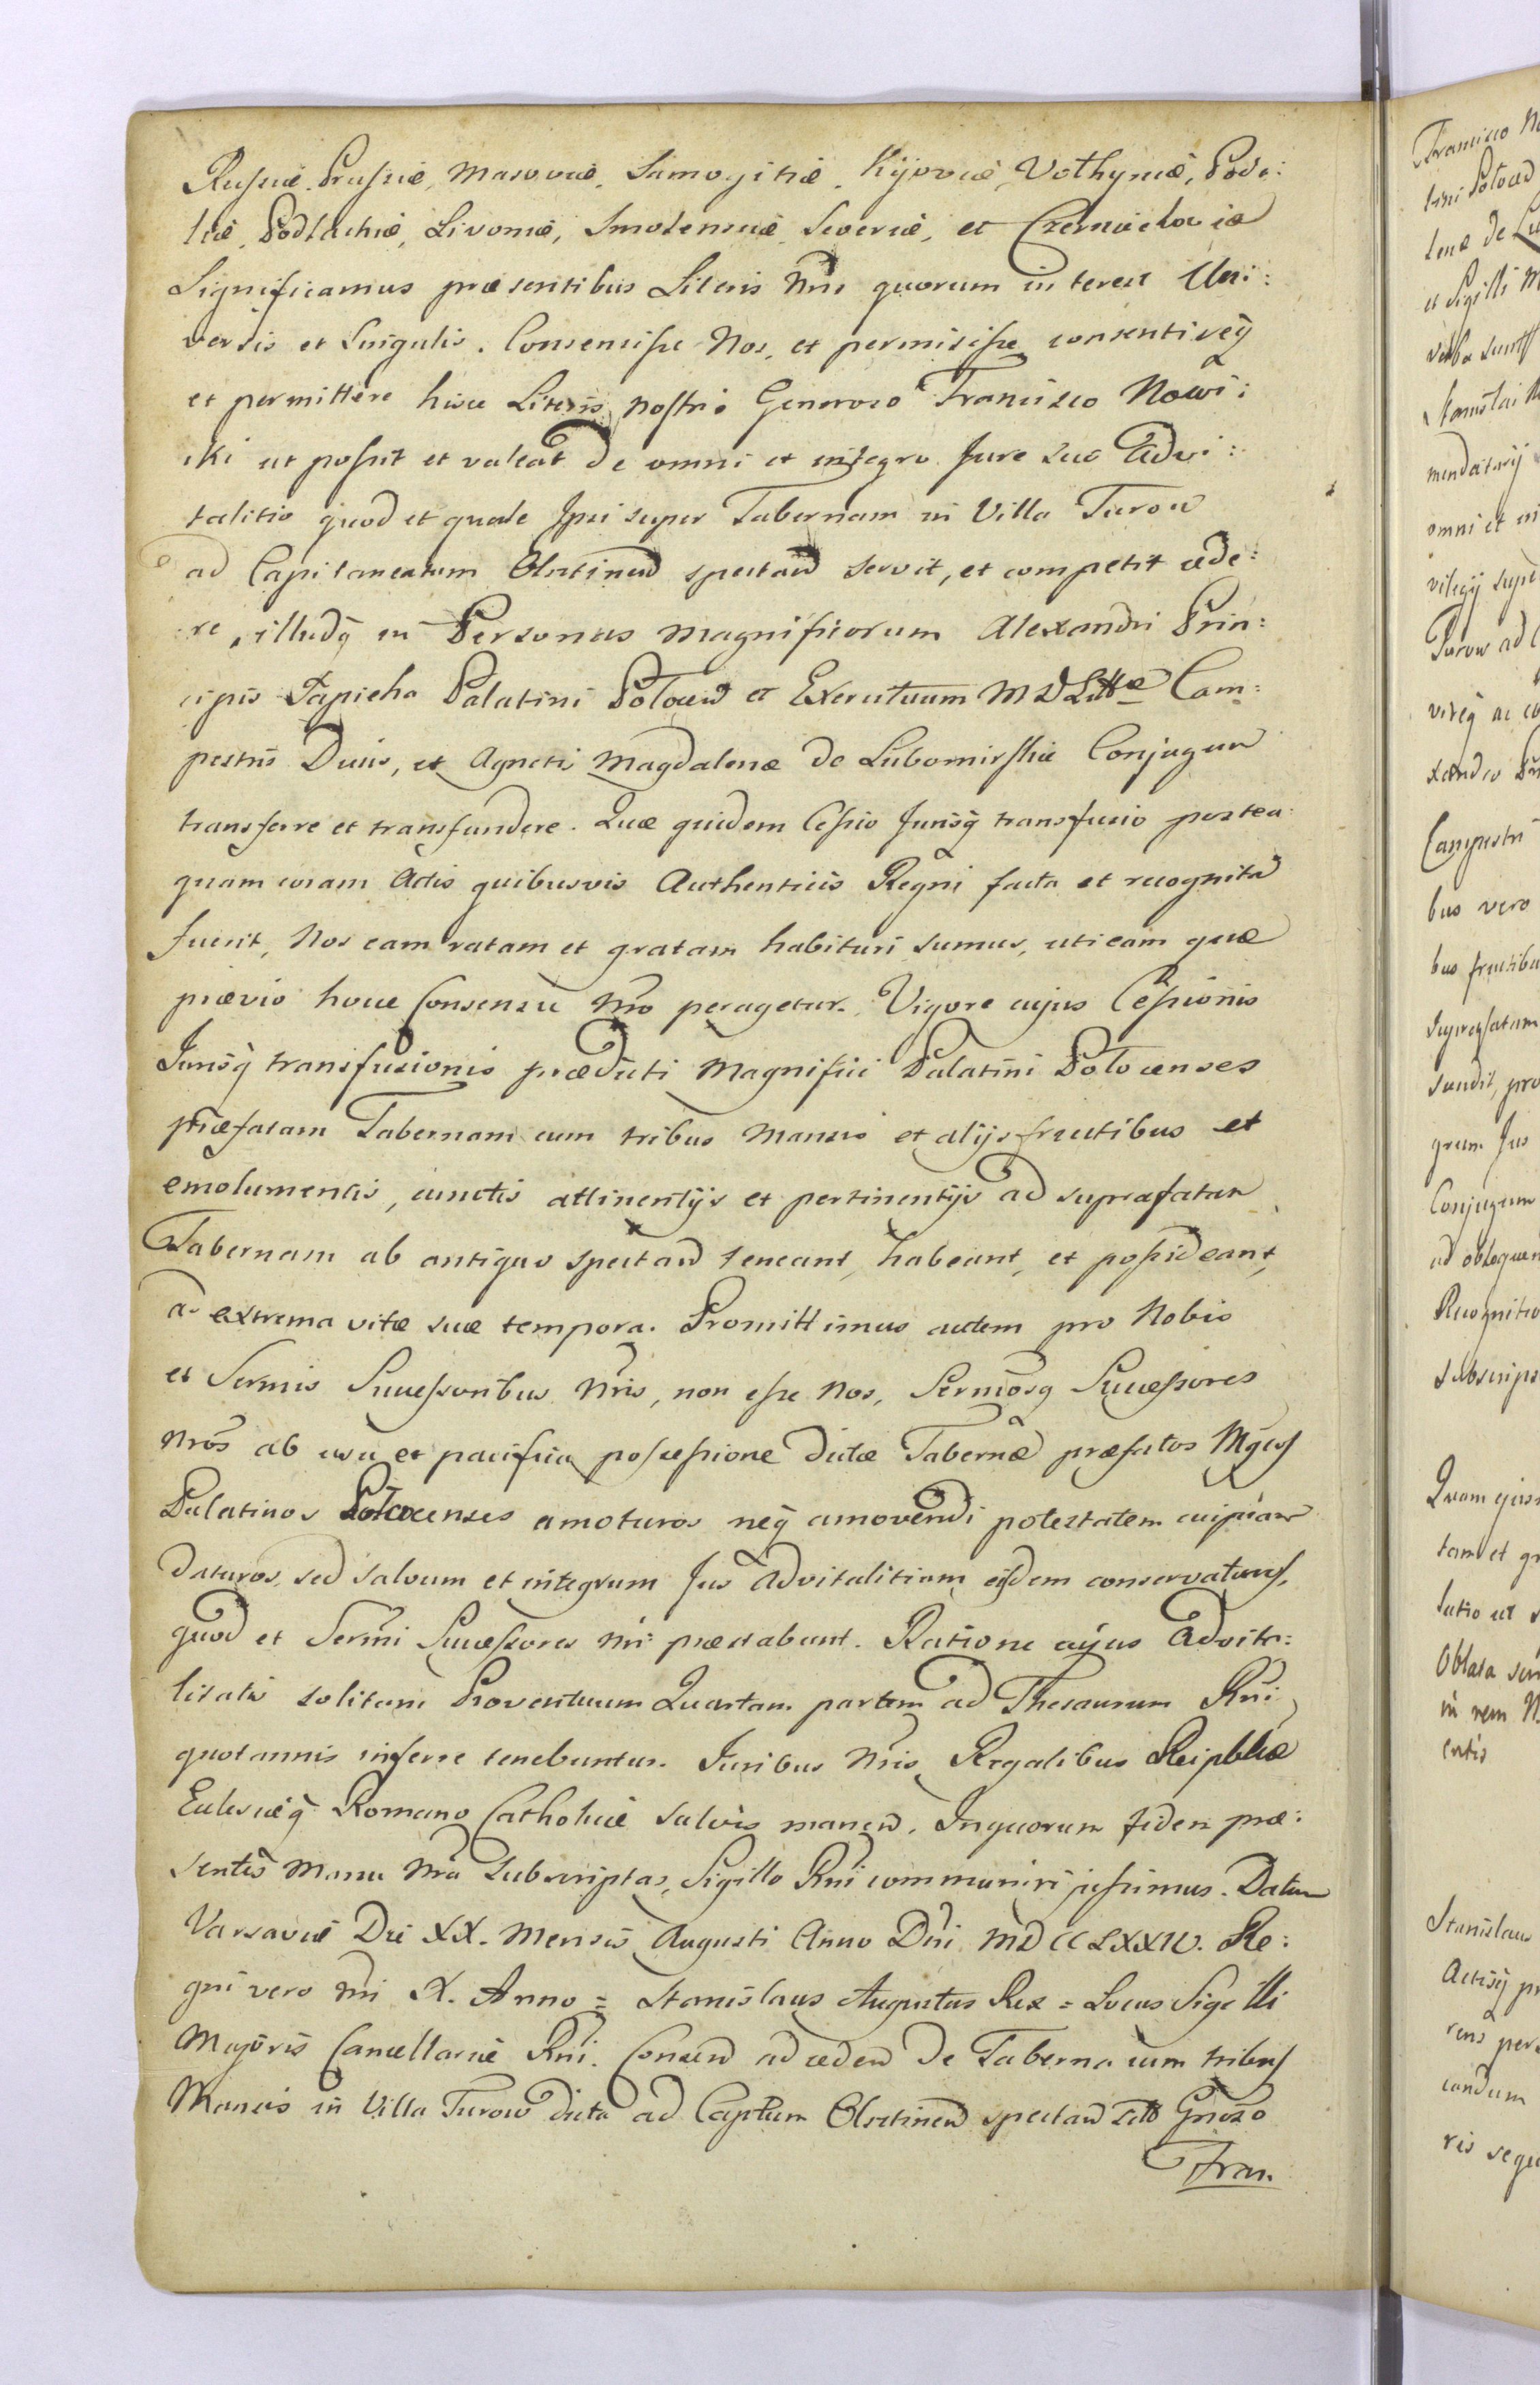 Russiæ, Prussiæ, Masoviæ, Samogitiæ, Kijoviæ, Volhyniæ, Podo:
liæ, Podlachiæ, Livoniæ, Smolensciæ, Severiæ, et Czerniechoviæ
Significamus præsentibus Literis Nris quorum interest Uni:
versis et Singulis. Consensisse Nos, et permisisse consentireq̃
et permittere hisce Literis nostris Generoso Francisco Nowi:
ski ut possit et valeat de omni et integro Jure suo Advi:
talitio quod et quale Ipsi super Tabernam in Villa Turow
ad Capitaneatum Olsztinen spectan servit, et competit cede:
re, illudq̃ in Personas Magnificorum Alexandri Prin:
cipis Sapieha Palatini Polocen et Exercituum M D Littæ Cam:
pestris Ducis, et Agnetis Magdalenæ de Lubomirskie Conjugum
transferre et transfundere. Quæ quidem Cessio Jurisq̃ transfusio postea
quam coram Actis quibusvis Authenticis Regni facta et recognita
fuerit, Nos eam ratam et gratam habituri sumus, uti eam quæ
prævio hocce Consensu Nro peragetur. Vigore cujus Cessionis
Jurisq̃ transfusionis prædicti Magnifici Palatini Polocenses
præfatam Tabernam cum tribus Mansis et alijs fructibus et
emolumentis, cunctis attinentijs et pertinentijs ad suprafatam
Tabernam ab antiquo spectan teneant, habeant, et possideant,
ad extrema vitæ suæ tempora. Promittimus autem pro Nobis
et Sermis Successoribus Nris, non esse Nos, Sermosq̃ Successores
Nros ab usu et pacifica possessione dictæ Tabernæ præfatos Mgcos
Palatinos Polocenses amoturos neq̃ amovendi potestatem cuipiam
daturos, sed salvum et integrum Jus Advitalitium eisdem conservaturos,
quod et Sermi Successores Nri præstabunt. Ratione cujus Advita:
litatis solitam Proventuum Quartam partem ad Thesaurum Rni
quotannis inferre tenebuntur. Juribus Nris Regalibus Reipblicæ
Eclesiæq̃ Romano Catholicæ salvis manen. In quorum fidem præ:
sentes Manu Nra Subscriptas, Sigillo Rni communiri jussimus. Datum
Varsaviæ Die XX. Mensis Augusti Anno Dni MDCCLXXIV. Re:
gni vero Nri X. Anno = Stanislaus Augustus Rex = Locus Sigilli
Majoris Cancellariæ Rni. Consen ad ceden de Taberna cum tribus
Mansis in Villa Turow dicta ad Captum Olsztinen spectan Gnoso
Fran.
Francisco
tini Polocen
lenæ de
et Sigilli
verba sunt
Stanislai
mendatarij
omni et in
vilegij supe
Turow ad
vireq̃ ac
xandro
Campestri
bus vero
bus fructibu
suprafatam
fundit, pro
grum Jus
Conjugum
ad obloquen
Recognitio
subscrips
Quam ejus
tam et gr
latio ut
Oblata
in rem N
centis
Stanislaus
Actisq̃
rens pers
candum
ris sequ